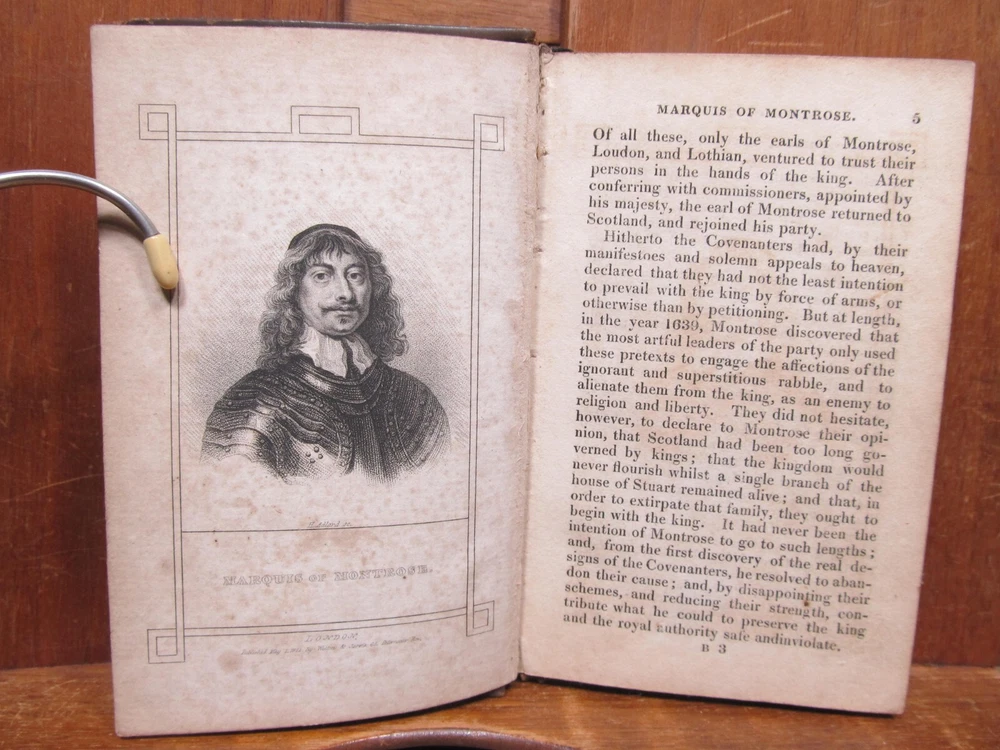 MARQUIS OF MONTROSE.
LONDON,
MARQUIS OF MONTROSE. 5
Of all these, only the earls of Montrose,
Loudon, and Lothian, ventured to trust their
persons in the hands of the king. After
conferring with commissioners, appointed by
his majesty, the earl of Montrose returned to
Scotland, and rejoined his party.
Hitherto the Covenanters had, by their
manifestoes and solemn appeals to heaven,
declared that they had not the least intention
to prevail with the king by force of arms, or
otherwise than by petitioning. But at length,
in the year 1639, Montrose discovered that
the most artful leaders of the party only used
these pretexts to engage the affections of the
ignorant and superstitious rabble, and to
alienate them from the king, as an enemy to
religion and liberty. They did not hesitate,
however, to declare to Montrose their opi-
nion, that Scotland had been too long go-
verned by kings; that the kingdom would
never flourish whilst a single branch of the
house of Stuart remained alive; and that, in
order to extirpate that family, they ought to
begin with the king. It had never been the
intention of Montrose to go to such lengths;
and, from the first discovery of the real de-
signs of the Covenanters, he resolved to aban-
don their cause; and, by disappointing their
schemes, and reducing their strength, con-
tribute what he could to preserve the king
and the royal authority safe andinviolate.
B 3